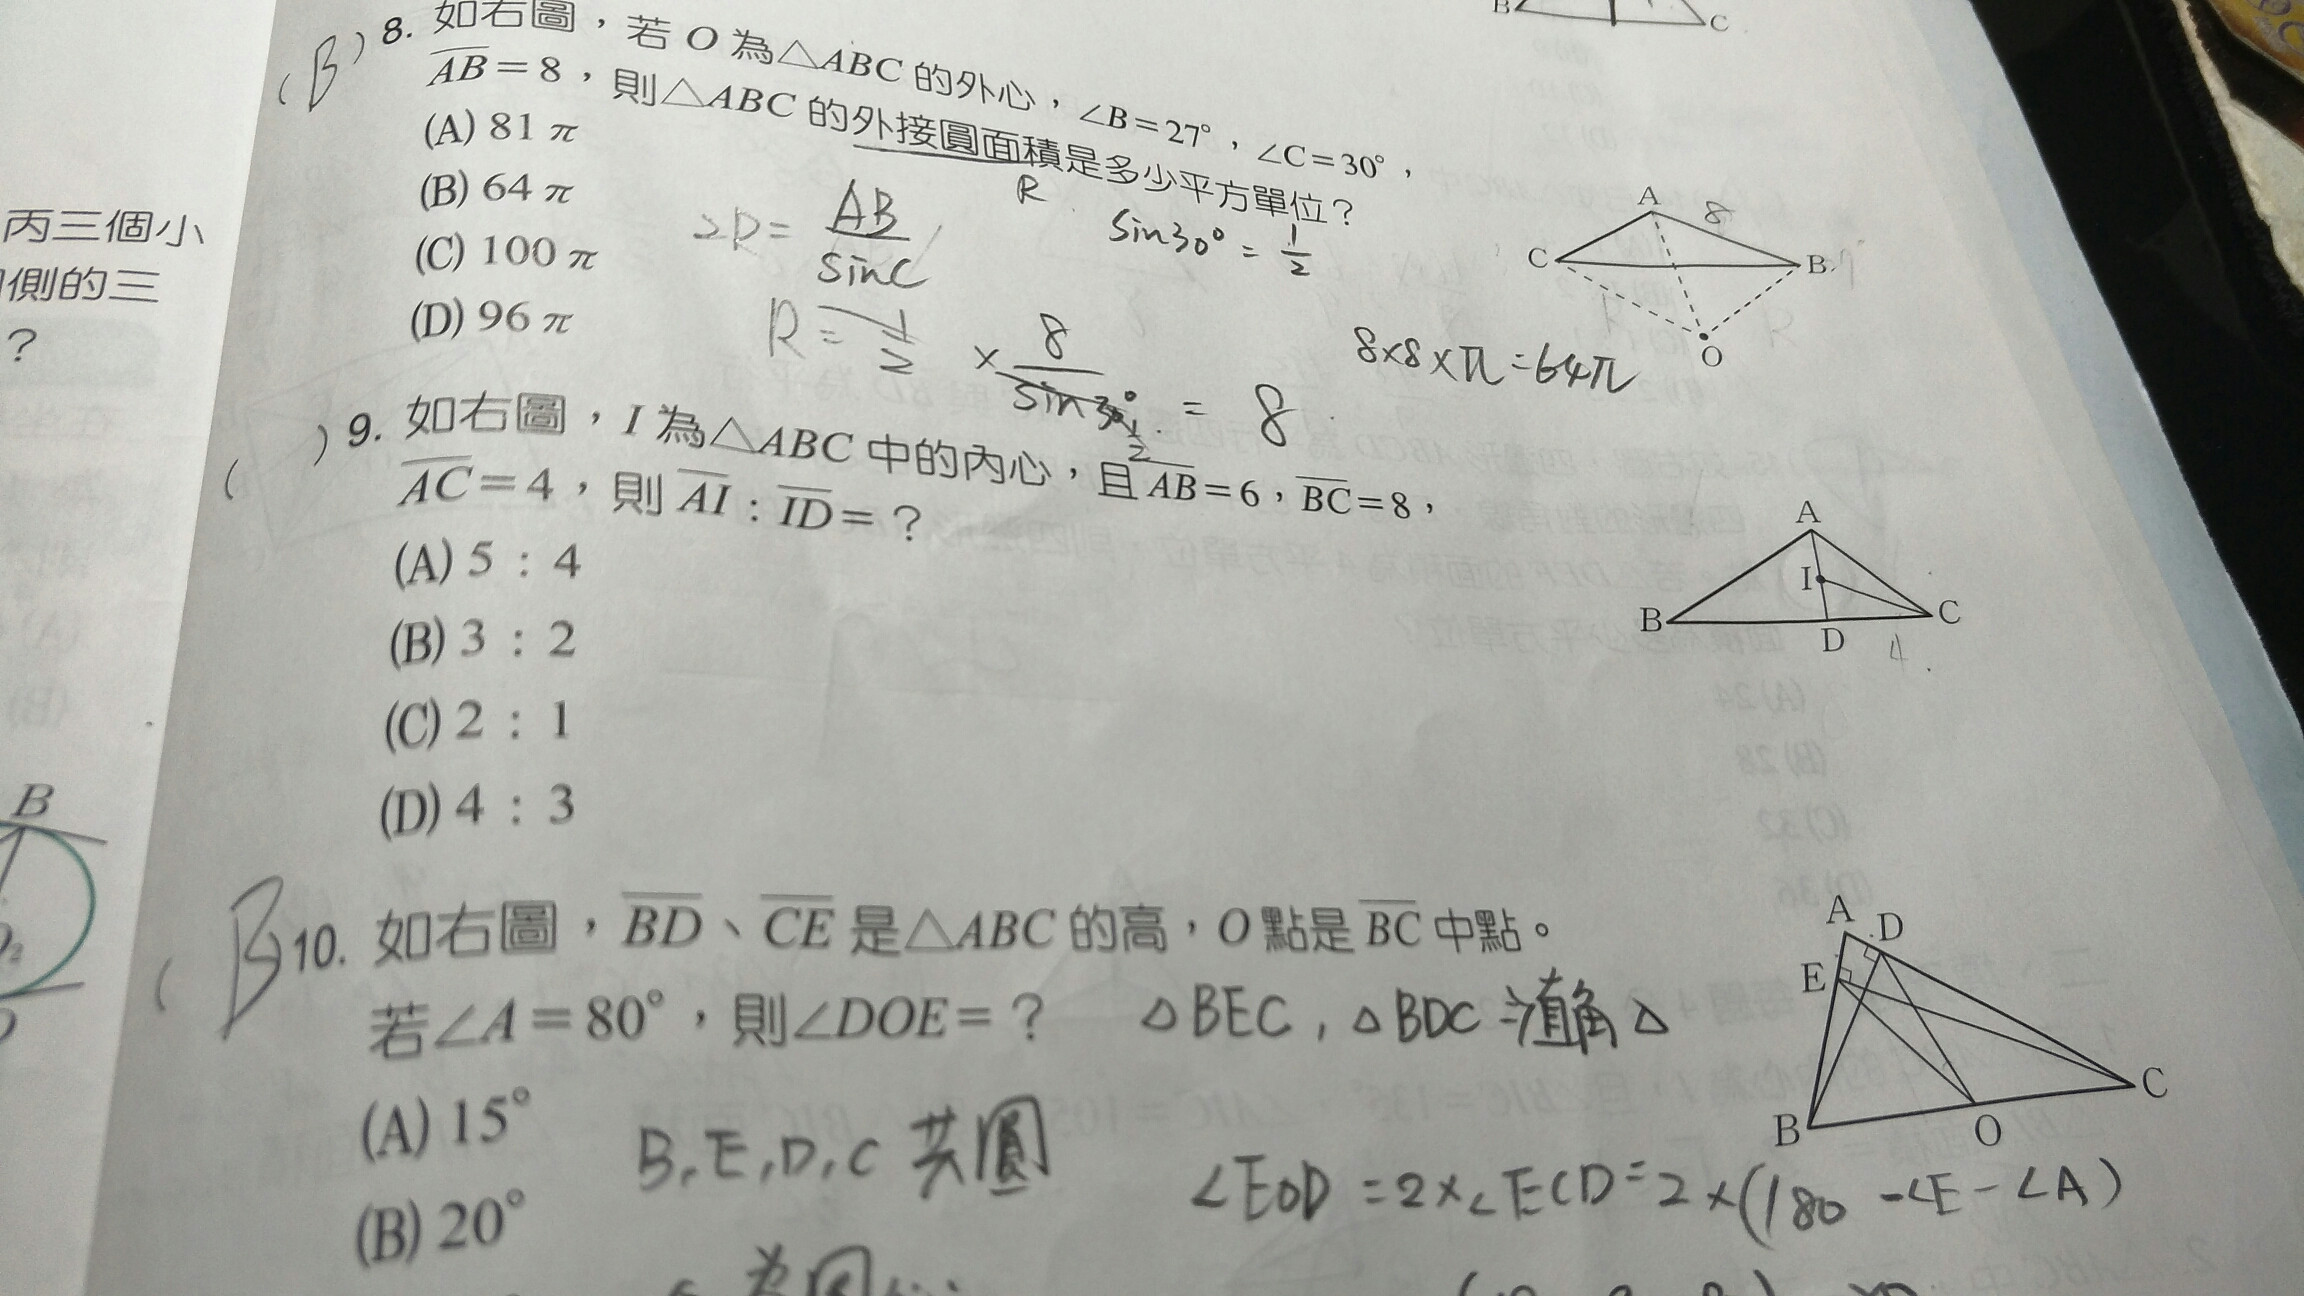 B C
(B) 8. 如右圖，若 O 為△ABC 的外心，∠B=27°，∠C=30°，
AB=8，則△ABC 的外接圓面積是多少平方單位？
(A) 81π
(B) 64π
(C) 100π
(D) 96π
R
2R= AB/sinC
sin30° = 1/2
R= 1/2 × 8/sin30° = 8
1/2
8×8×π=64π
A 8
C B
O
( ) 9. 如右圖，I 為△ABC 中的內心，且 AB=6，BC=8，
AC=4，則 AI：ID=？
(A) 5：4
(B) 3：2
(C) 2：1
(D) 4：3
A
I
B D C
4
(B 10. 如右圖，BD、CE 是△ABC 的高，O 點是 BC 中點。
若∠A=80°，則∠DOE=？
△BEC，△BDC 為直角△
(A) 15°
B,E,D,C 共圓
∠EOD=2×∠ECD=2×(180-∠E-∠A)
(B) 20°
A D
E
B O C
丙三個小
側的三
？
B